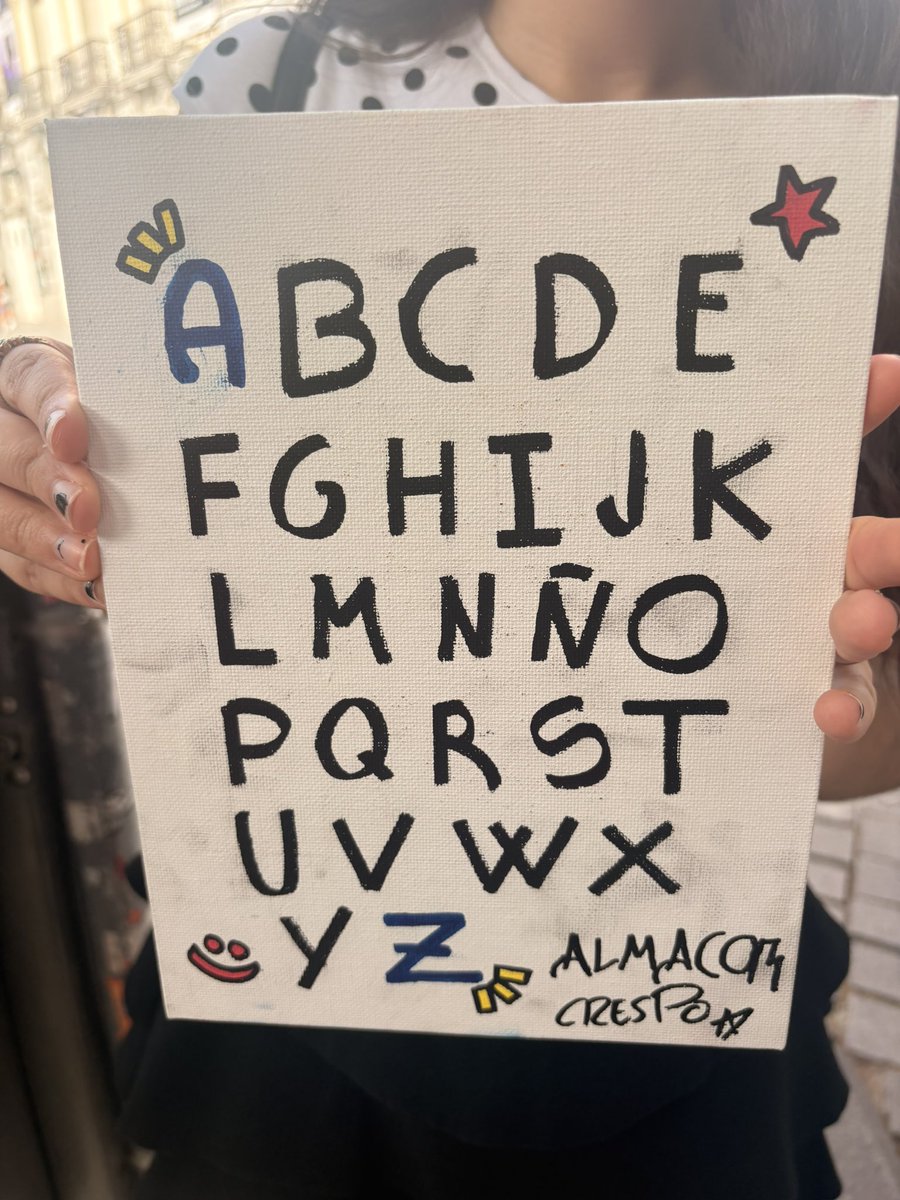 A B C D E
F G H I J K
L M N Ñ O
P Q R S T
U V W X
Y Z
CRESPO